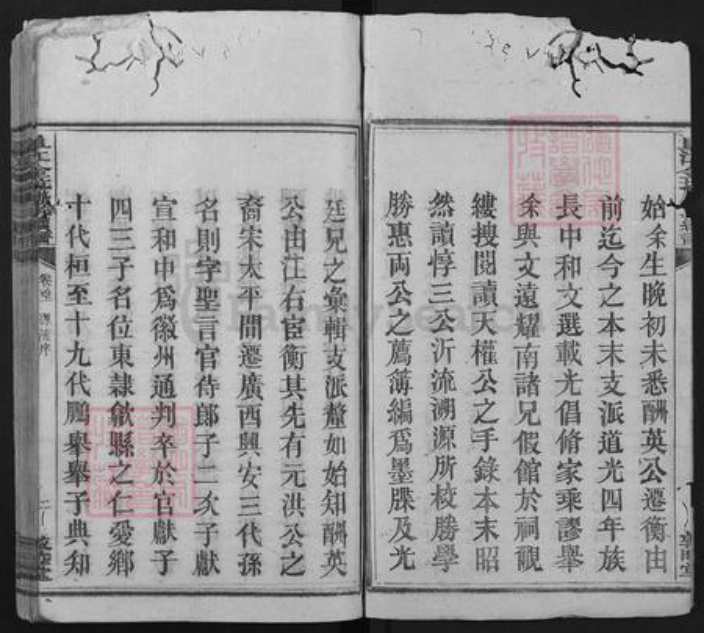 始余生晚初未悉酬英公遷衡由
前迄今之本末支派道光四年族
長中和文選載光倡脩家乘謬舉
余與文遠耀南諸兄假館於祠覩
縷搜閱讀天權公之手錄本末昭
然讀惇三公沂流溯源所校勝學
勝惠両公之薦簿編爲墨牒及光
廷兄之彙輯支派釐如始知酬英
公由江右臣衡其先有元洪公之
裔宋太平間遷廣西興安三代孫
名則字聖言官侍郎子二次子獻
宣和中爲徽州通判卒於官獻子
四三子名位東隷歙縣之仁愛鄉
十代桓至十九代鵬舉舉子典知
源流序
FamilySearch